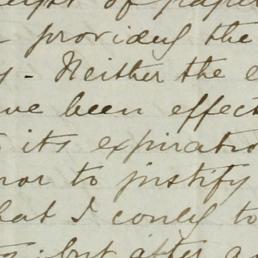 of paper
providing the
- Neither the e
ve been effect
its expiratio
nor to justify
hat I could to
; but after a